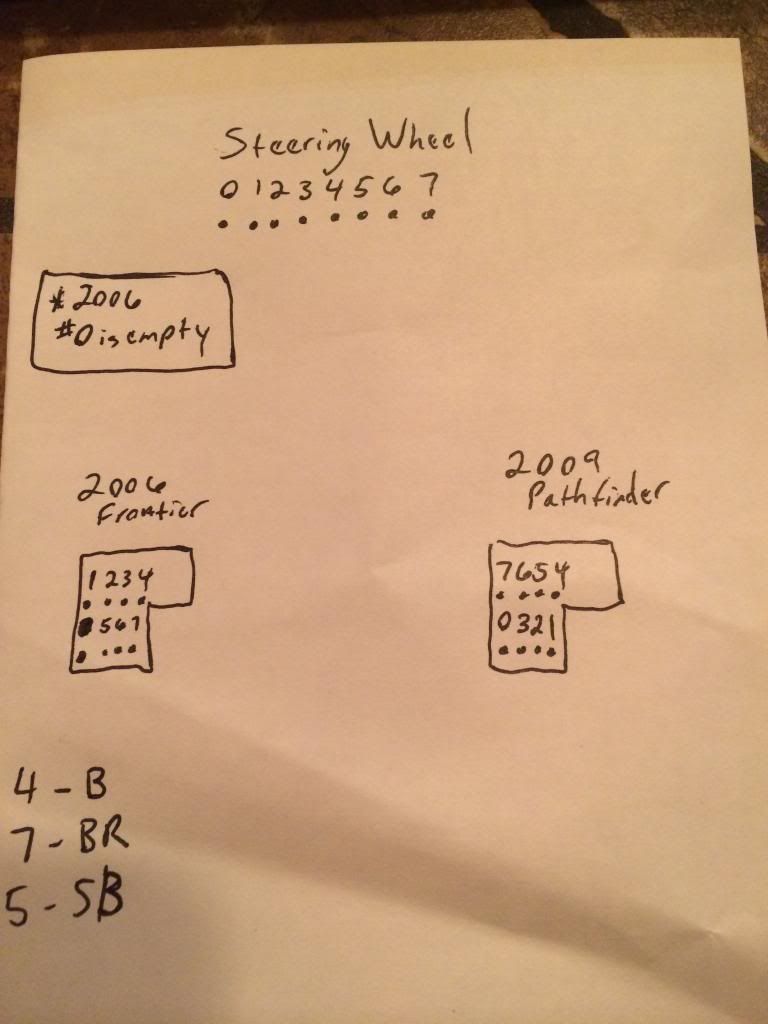 Steering Wheel
0 1 2 3 4 5 6 7
*2006
#0 is empty
2006
Frontier
1 2 3 4
5 6 7
2009
Pathfinder
7 6 5 4
0 3 2 1
4 - B
7 - BR
5 - SB